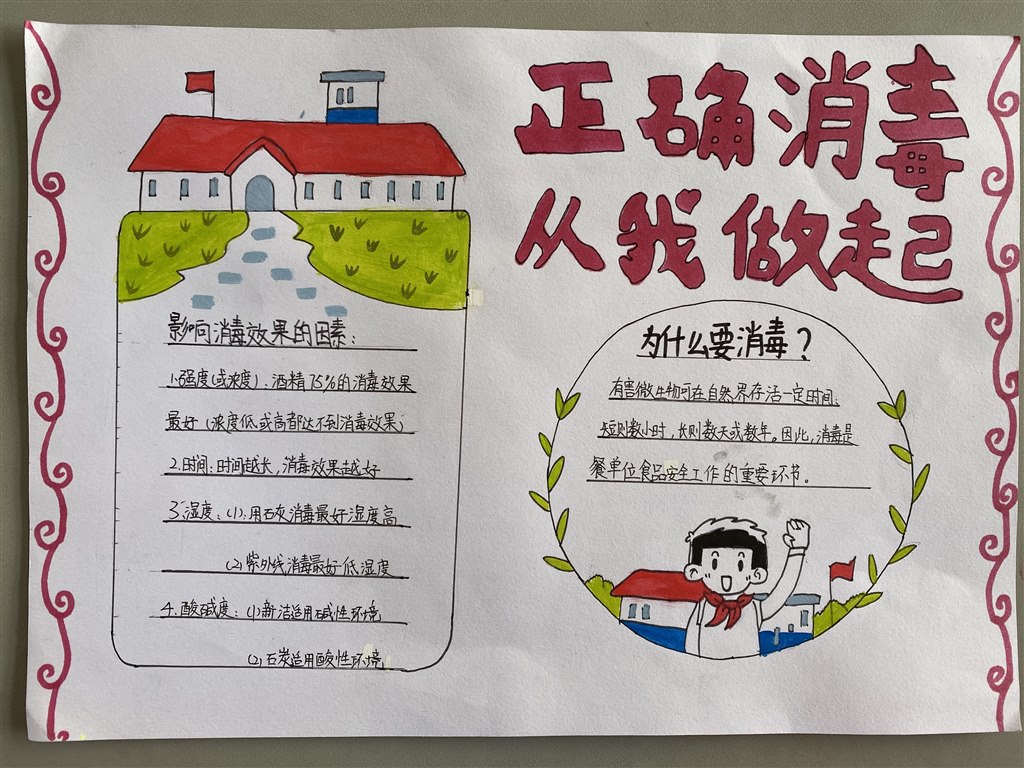 正确消毒
从我做起
影响消毒效果的因素：
1.强度（或浓度）：酒精75%的消毒效果
最好（浓度低或高都达不到消毒效果）
2.时间：时间越长，消毒效果越好
3.湿度：（1）.用石灰消毒最好湿度高
（2）紫外线消毒最好低湿度
4.酸碱度：（1）新洁适用碱性环境
（2）石炭适用酸性环境
为什么要消毒？
有害微生物可在自然界存活一定时间，
短则数小时，长则数天或数年。因此，消毒是
餐单位食品安全工作的重要环节。